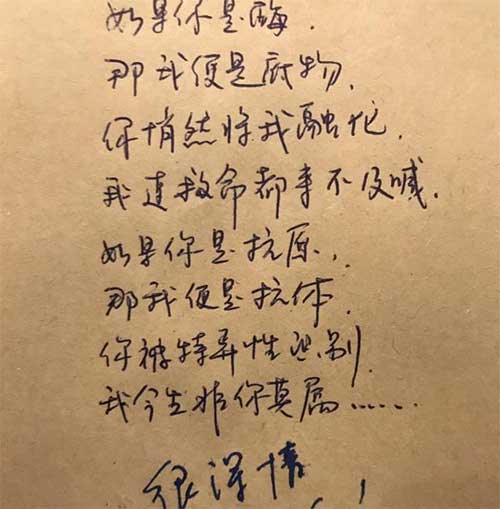 如果你是酶.
那我便是底物.
你悄然将我融化.
我连救命都来不及喊.
如果你是抗原.
那我便是抗体.
你被特异性识别.
我今生非你莫属......
很深情